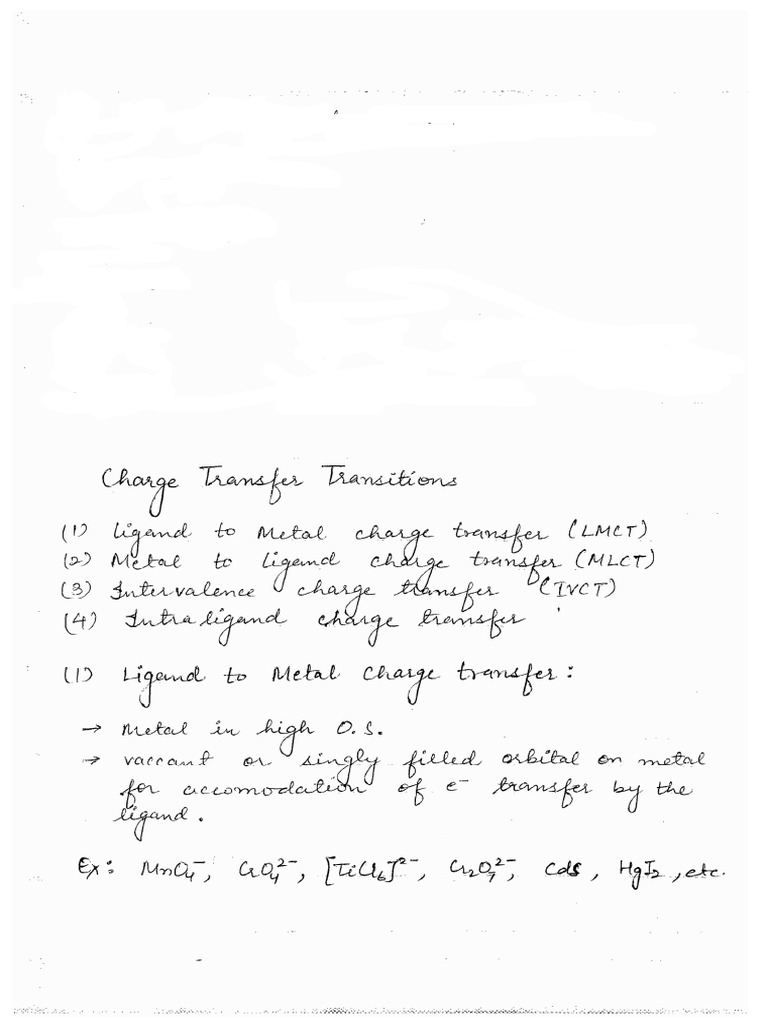 Charge Transfer Transitions
(1) Ligand to Metal charge transfer (LMCT)
(2) Metal to Ligand charge transfer (MLCT)
(3) Intervalence charge transfer (IVCT)
(4) Intra ligand charge transfer
(1) Ligand to Metal charge transfer :
→ Metal in high O.S.
→ vaccant or singly filled orbital on metal
for accomodation of e⁻ transfer by the
ligand.
Ex: MnO₄⁻, CrO₄²⁻, [TiCl₆]²⁻, Cr₂O₇²⁻, CdS, HgI₂, etc.